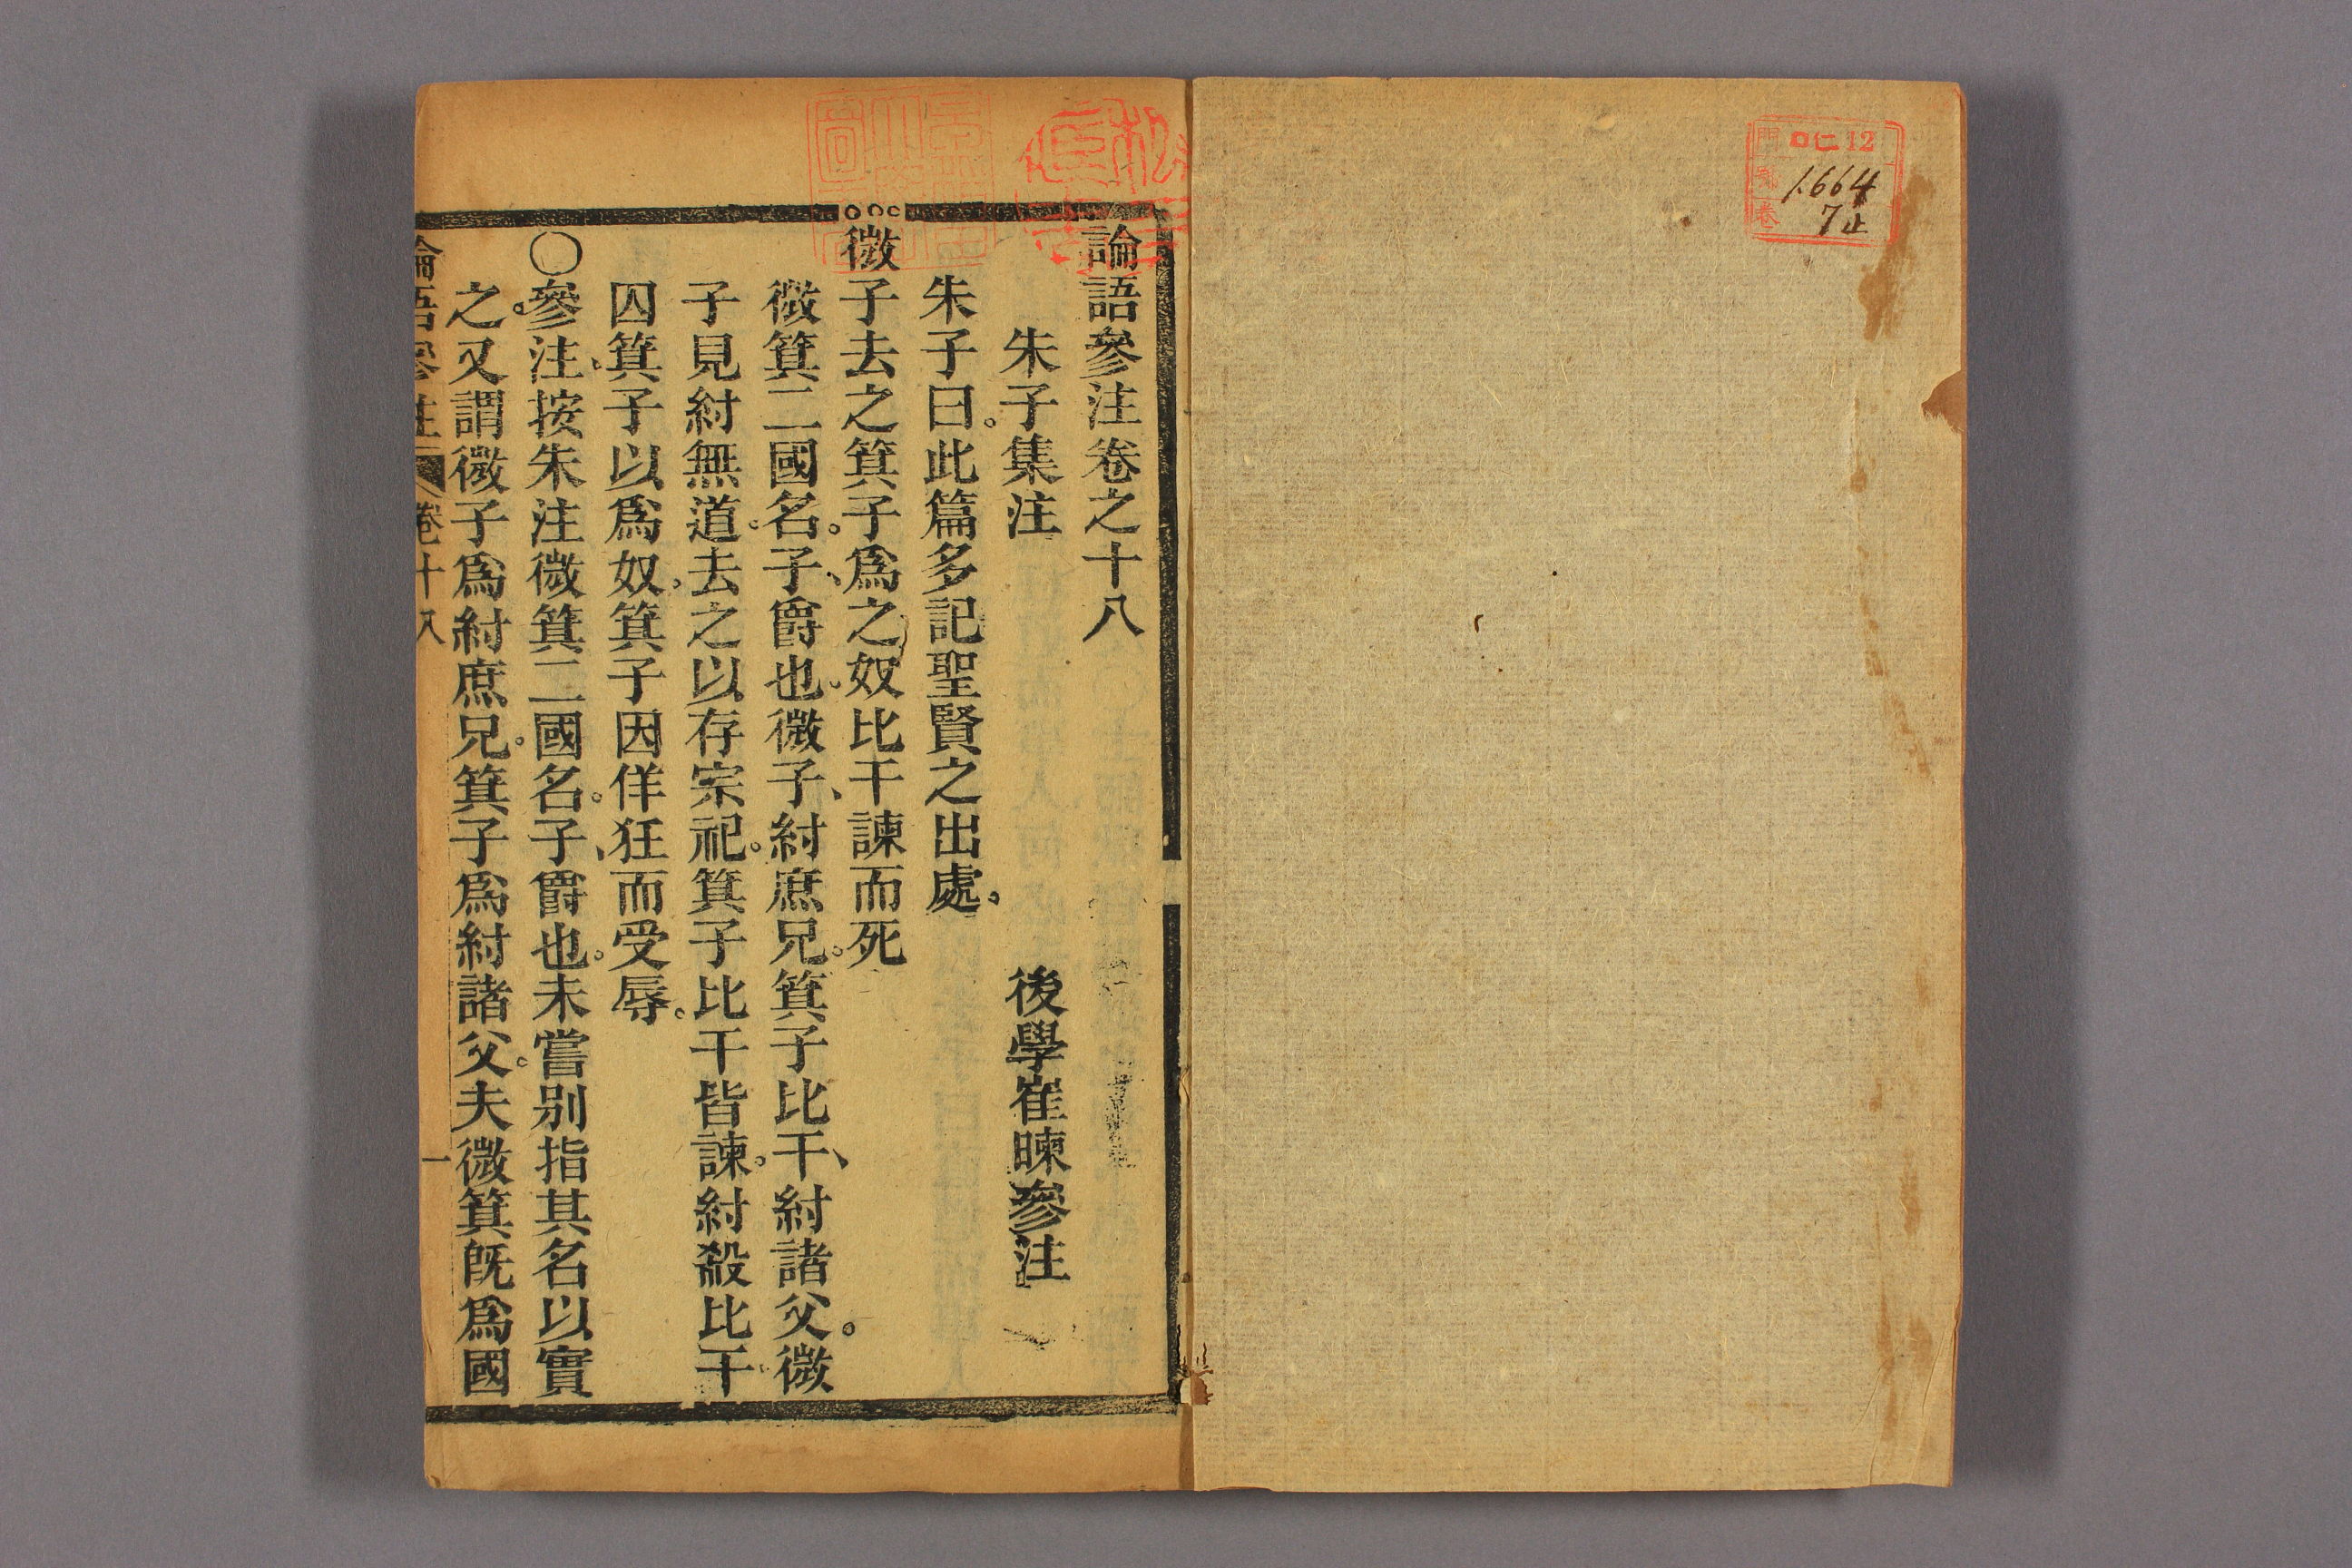 門 口仁12
號 1664
卷 7止
論語參注卷之十八
朱子集注
後學崔暕參注
朱子曰。此篇多記聖賢之出處。
微子去之箕子爲之奴比干諫而死
微箕二國名。子、爵也。微子、紂庶兄。箕子比干、紂諸父。微
子見紂無道。去之以存宗祀。箕子比干皆諫。紂殺比干
囚箕子以爲奴。箕子因佯狂而受辱。
〇參注、按朱注微箕二國名。子、爵也。未嘗別指其名以實
之。又謂微子爲紂庶兄。箕子爲紂諸父。夫微箕旣爲國
論語參注 卷十八 一